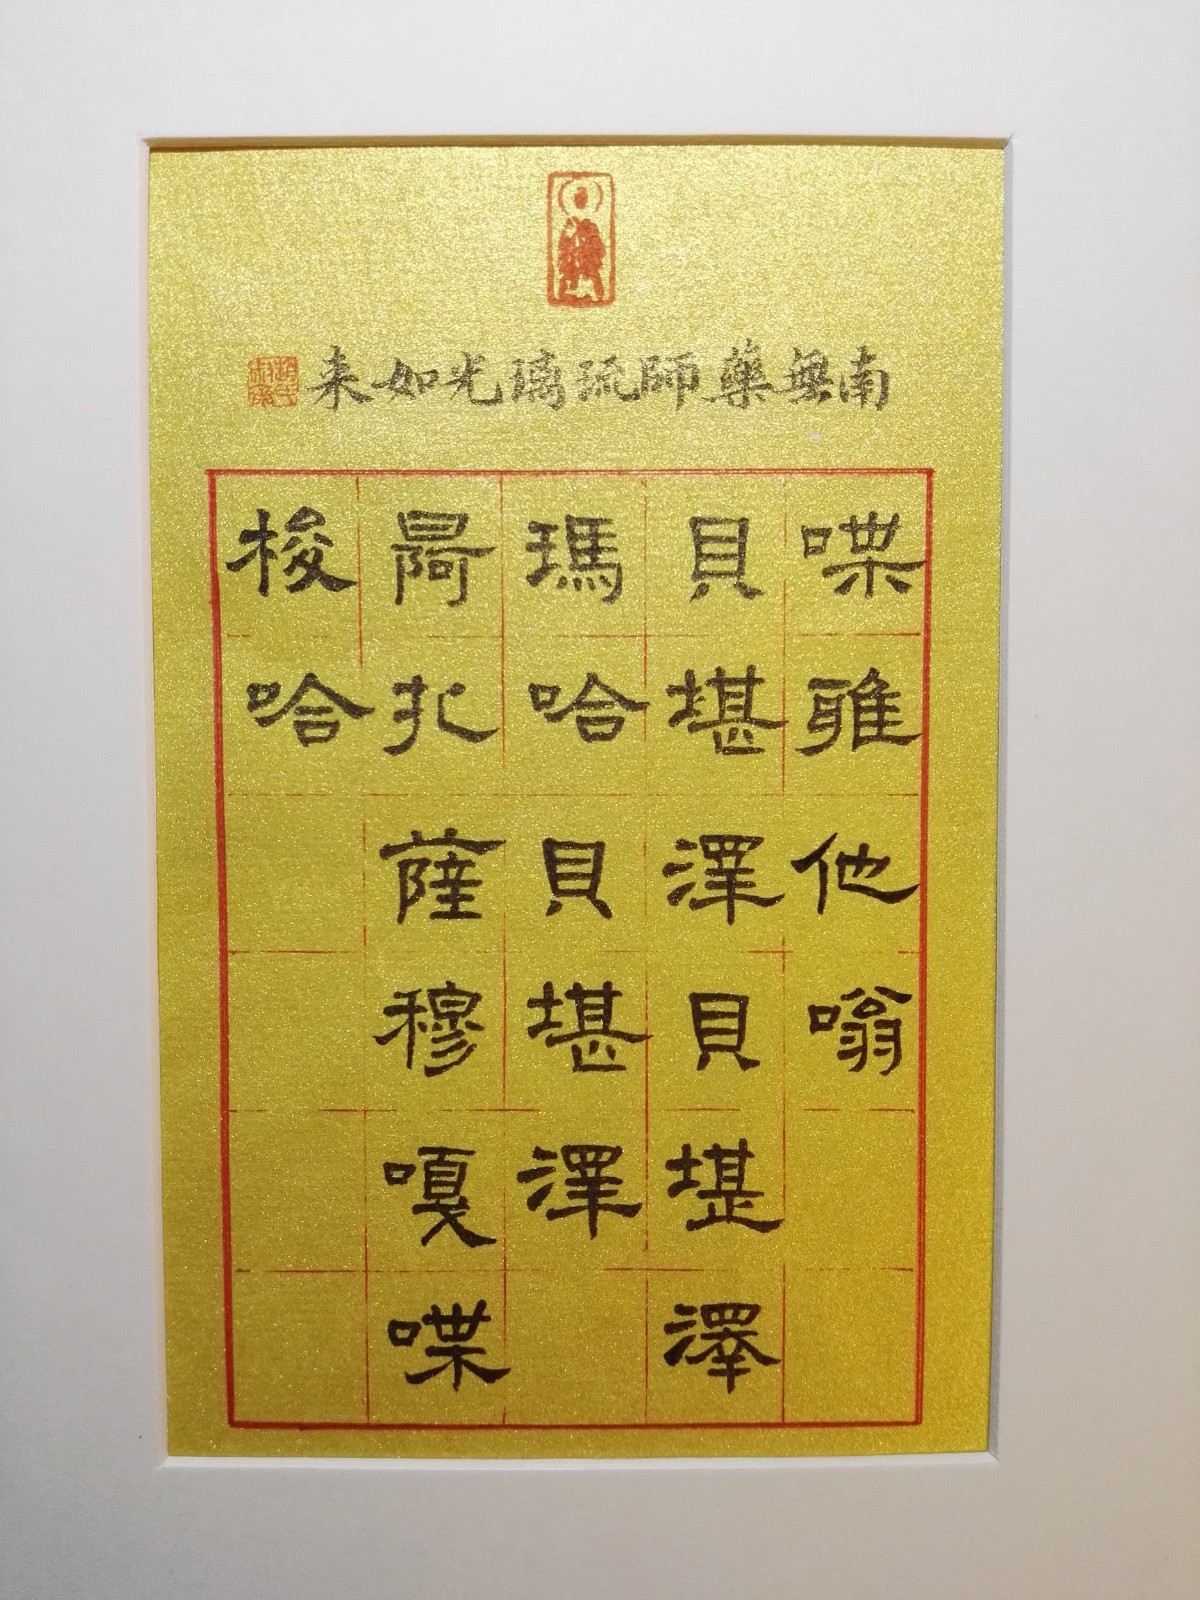 南無藥師琉璃光如来
喋雅他嗡
貝堪澤貝堪澤
瑪哈貝堪澤
扎薩穆嘎喋
梭哈